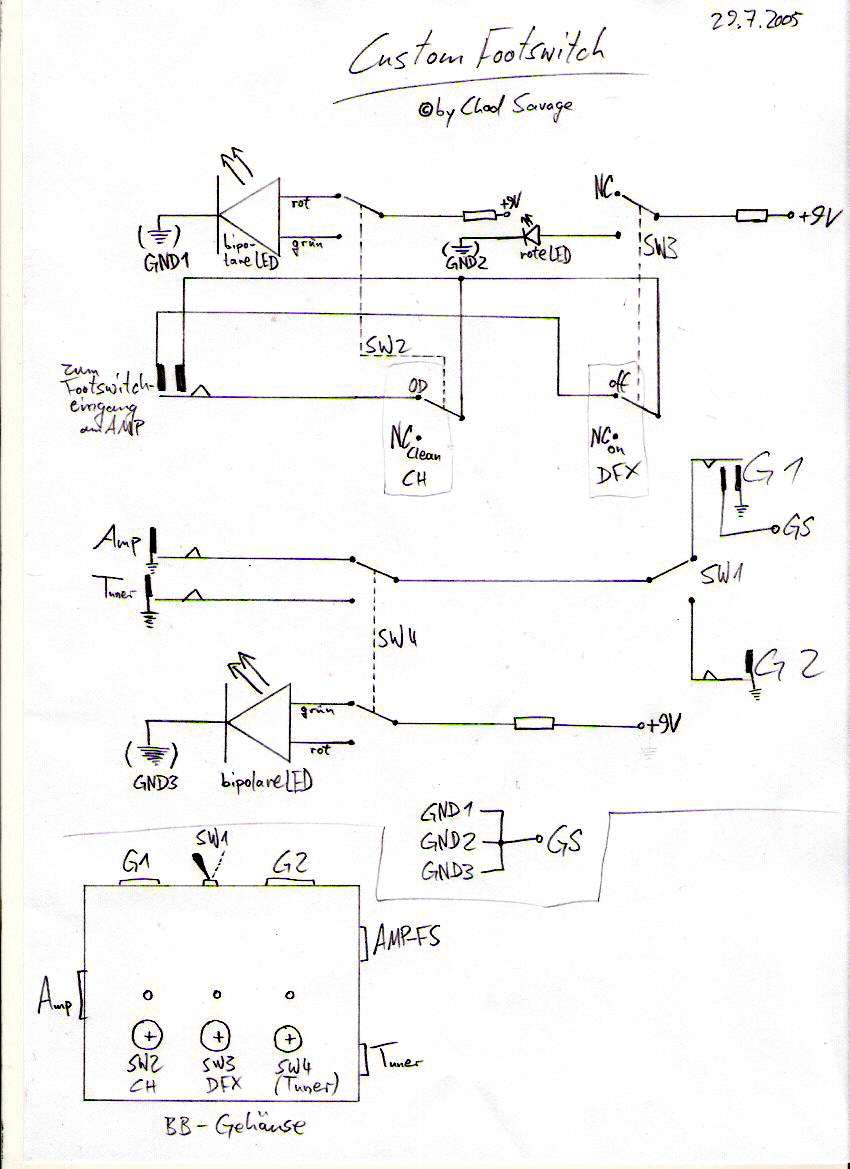 29.7.2005
Custom Footswitch
© by Chad Savage
rot
grün
bipo-
lare LED
(GND1)
+9V
rote LED
(GND2)
NC
+9V
SW3
SW2
zum
Footswitch-
eingang
am AMP
OD
NC
Clean
CH
off
NC
on
DFX
G1
GS
Amp
Tuner
SW1
SW4
G2
grün
rot
+9V
GND3
bipolare LED
GND1
GND2
GND3
GS
SW1
G1
G2
AMP-FS
Amp
SW2
CH
SW3
DFX
SW4
(Tuner)
Tuner
BB-Gehäuse